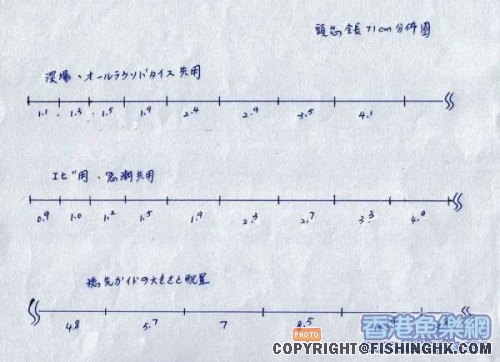 頭芯全長71cm分佈圖
深場、オールラウンドタイス共用
1.1 1.3 1.5 1.9 2.4 2.9 3.5 4.1
エビ用、急潮共用
0.9 1.0 1.2 1.5 1.9 2.3 2.7 3.3 4.0
穂先ガイドの大きさと配置
4.8 5.7 7 8.5
香港魚樂網
PHOTO
COPYRIGHT@FISHINGHK.COM